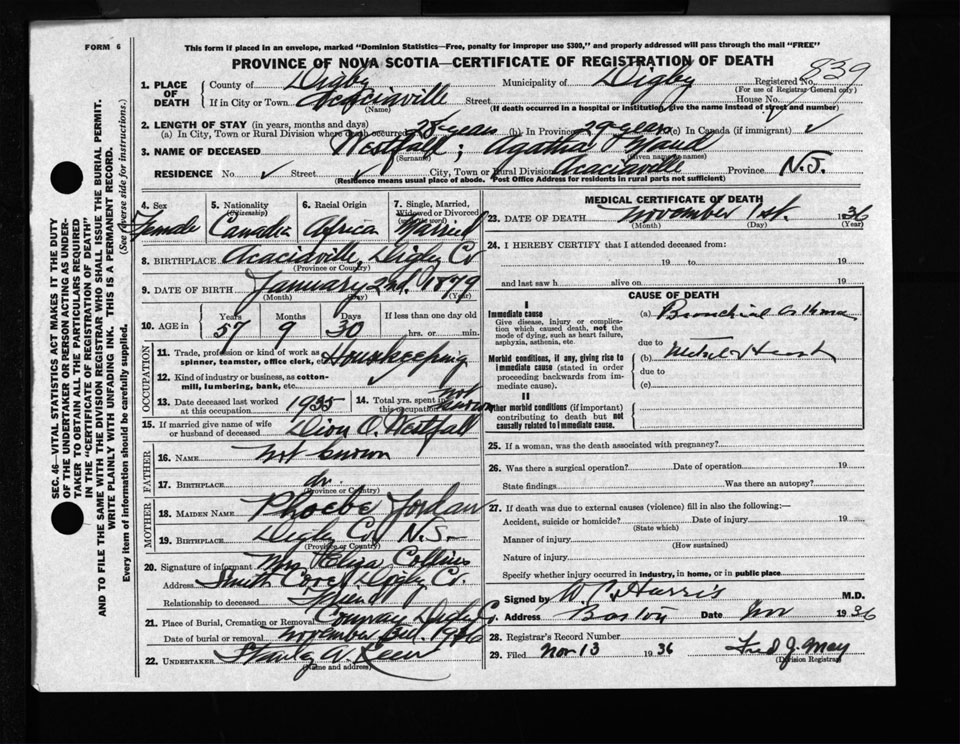 FORM 6
This form if placed in an envelope, marked "Dominion Statistics—Free, penalty for improper use $300," and properly addressed will pass through the mail "FREE"
PROVINCE OF NOVA SCOTIA—CERTIFICATE OF REGISTRATION OF DEATH
839
1. PLACE OF DEATH County of Digby Municipality of Digby Registered No.
(For use of Registrar General only)
If in City or Town Acaciaville Street House No.
(Name) (If death occurred in a hospital or institution, give the name instead of street and number)
2. LENGTH OF STAY (in years, months and days)
(a) In City, Town or Rural Division where death occurred 28 years (b) In Province 29 years (c) In Canada (if immigrant) ✓
3. NAME OF DECEASED Westfall; Agatha Maud
(Surname) (Given name or names)
RESIDENCE No. ✓ Street ✓ City, Town or Rural Division Acaciaville Province N.S.
(Residence means usual place of abode. Post Office Address for residents in rural parts not sufficient)
4. Sex 5. Nationality (Citizenship) 6. Racial Origin 7. Single, Married, Widowed or Divorced (write the word)
Female Canadia Africa Married
8. BIRTHPLACE Acaciaville, Digby Co
(Province or Country)
9. DATE OF BIRTH January 2nd. 1879
(Month) (Day) (Year)
10. AGE in Years Months Days If less than one day old
57 9 30 hrs. or min.
OCCUPATION
11. Trade, profession or kind of work as spinner, teamster, office clerk, etc. Housekeeping
12. Kind of industry or business, as cotton-mill, lumbering, bank, etc.
13. Date deceased last worked at this occupation 1935 14. Total yrs. spent in this occupation not known
15. If married give name of wife or husband of deceased Dion O. Westfall
FATHER
16. NAME not known
17. BIRTHPLACE do.
(Province or Country)
MOTHER
18. MAIDEN NAME Phoebe Jordan
19. BIRTHPLACE Digby Co. N.S.
(Province or Country)
20. Signature of informant Mrs Eliza Collins
Address Smith Cove Digby Co.
Relationship to deceased Friend
21. Place of Burial, Cremation or Removal Conway Digby Co.
Date of burial or removal November 1936
22. UNDERTAKER
(Name and address)
MEDICAL CERTIFICATE OF DEATH
23. DATE OF DEATH November 1st. 1936
(Month) (Day) (Year)
24. I HEREBY CERTIFY that I attended deceased from:
19 to 19
and last saw h alive on 19
CAUSE OF DEATH
I
Immediate cause (a) Bronchial Asthma
Give disease, injury or complication which caused death, not the mode of dying, such as heart failure, asphyxia, asthenia, etc.
due to
Morbid conditions, if any, giving rise to immediate cause (stated in order proceeding backwards from immediate cause). (b) Mitral Heart
due to
(c)
II
Other morbid conditions (if important) contributing to death but not causally related to immediate cause.
25. If a woman, was the death associated with pregnancy?
26. Was there a surgical operation? Date of operation 19
State findings Was there an autopsy?
27. If death was due to external causes (violence) fill in also the following:—
Accident, suicide or homicide? Date of injury 19
(State which)
Manner of injury
(How sustained)
Nature of injury
Specify whether injury occurred in industry, in home, or in public place
Signed by Harris M.D.
Address Date Nov 1936
28. Registrar's Record Number
29. Filed Nov 13 1936 Fred J. May
(Division Registrar)
SEC. 46—VITAL STATISTICS ACT MAKES IT THE DUTY
OF THE UNDERTAKER OR PERSON ACTING AS UNDER-
TAKER TO OBTAIN ALL THE PARTICULARS REQUIRED
IN THE "CERTIFICATE OF REGISTRATION OF DEATH"
AND TO FILE THE SAME WITH THE DIVISION REGISTRAR WHO SHALL ISSUE THE BURIAL PERMIT.
WRITE PLAINLY WITH UNFADING INK. THIS IS A PERMANENT RECORD.
Every item of information should be carefully supplied. (See reverse side for instructions.)